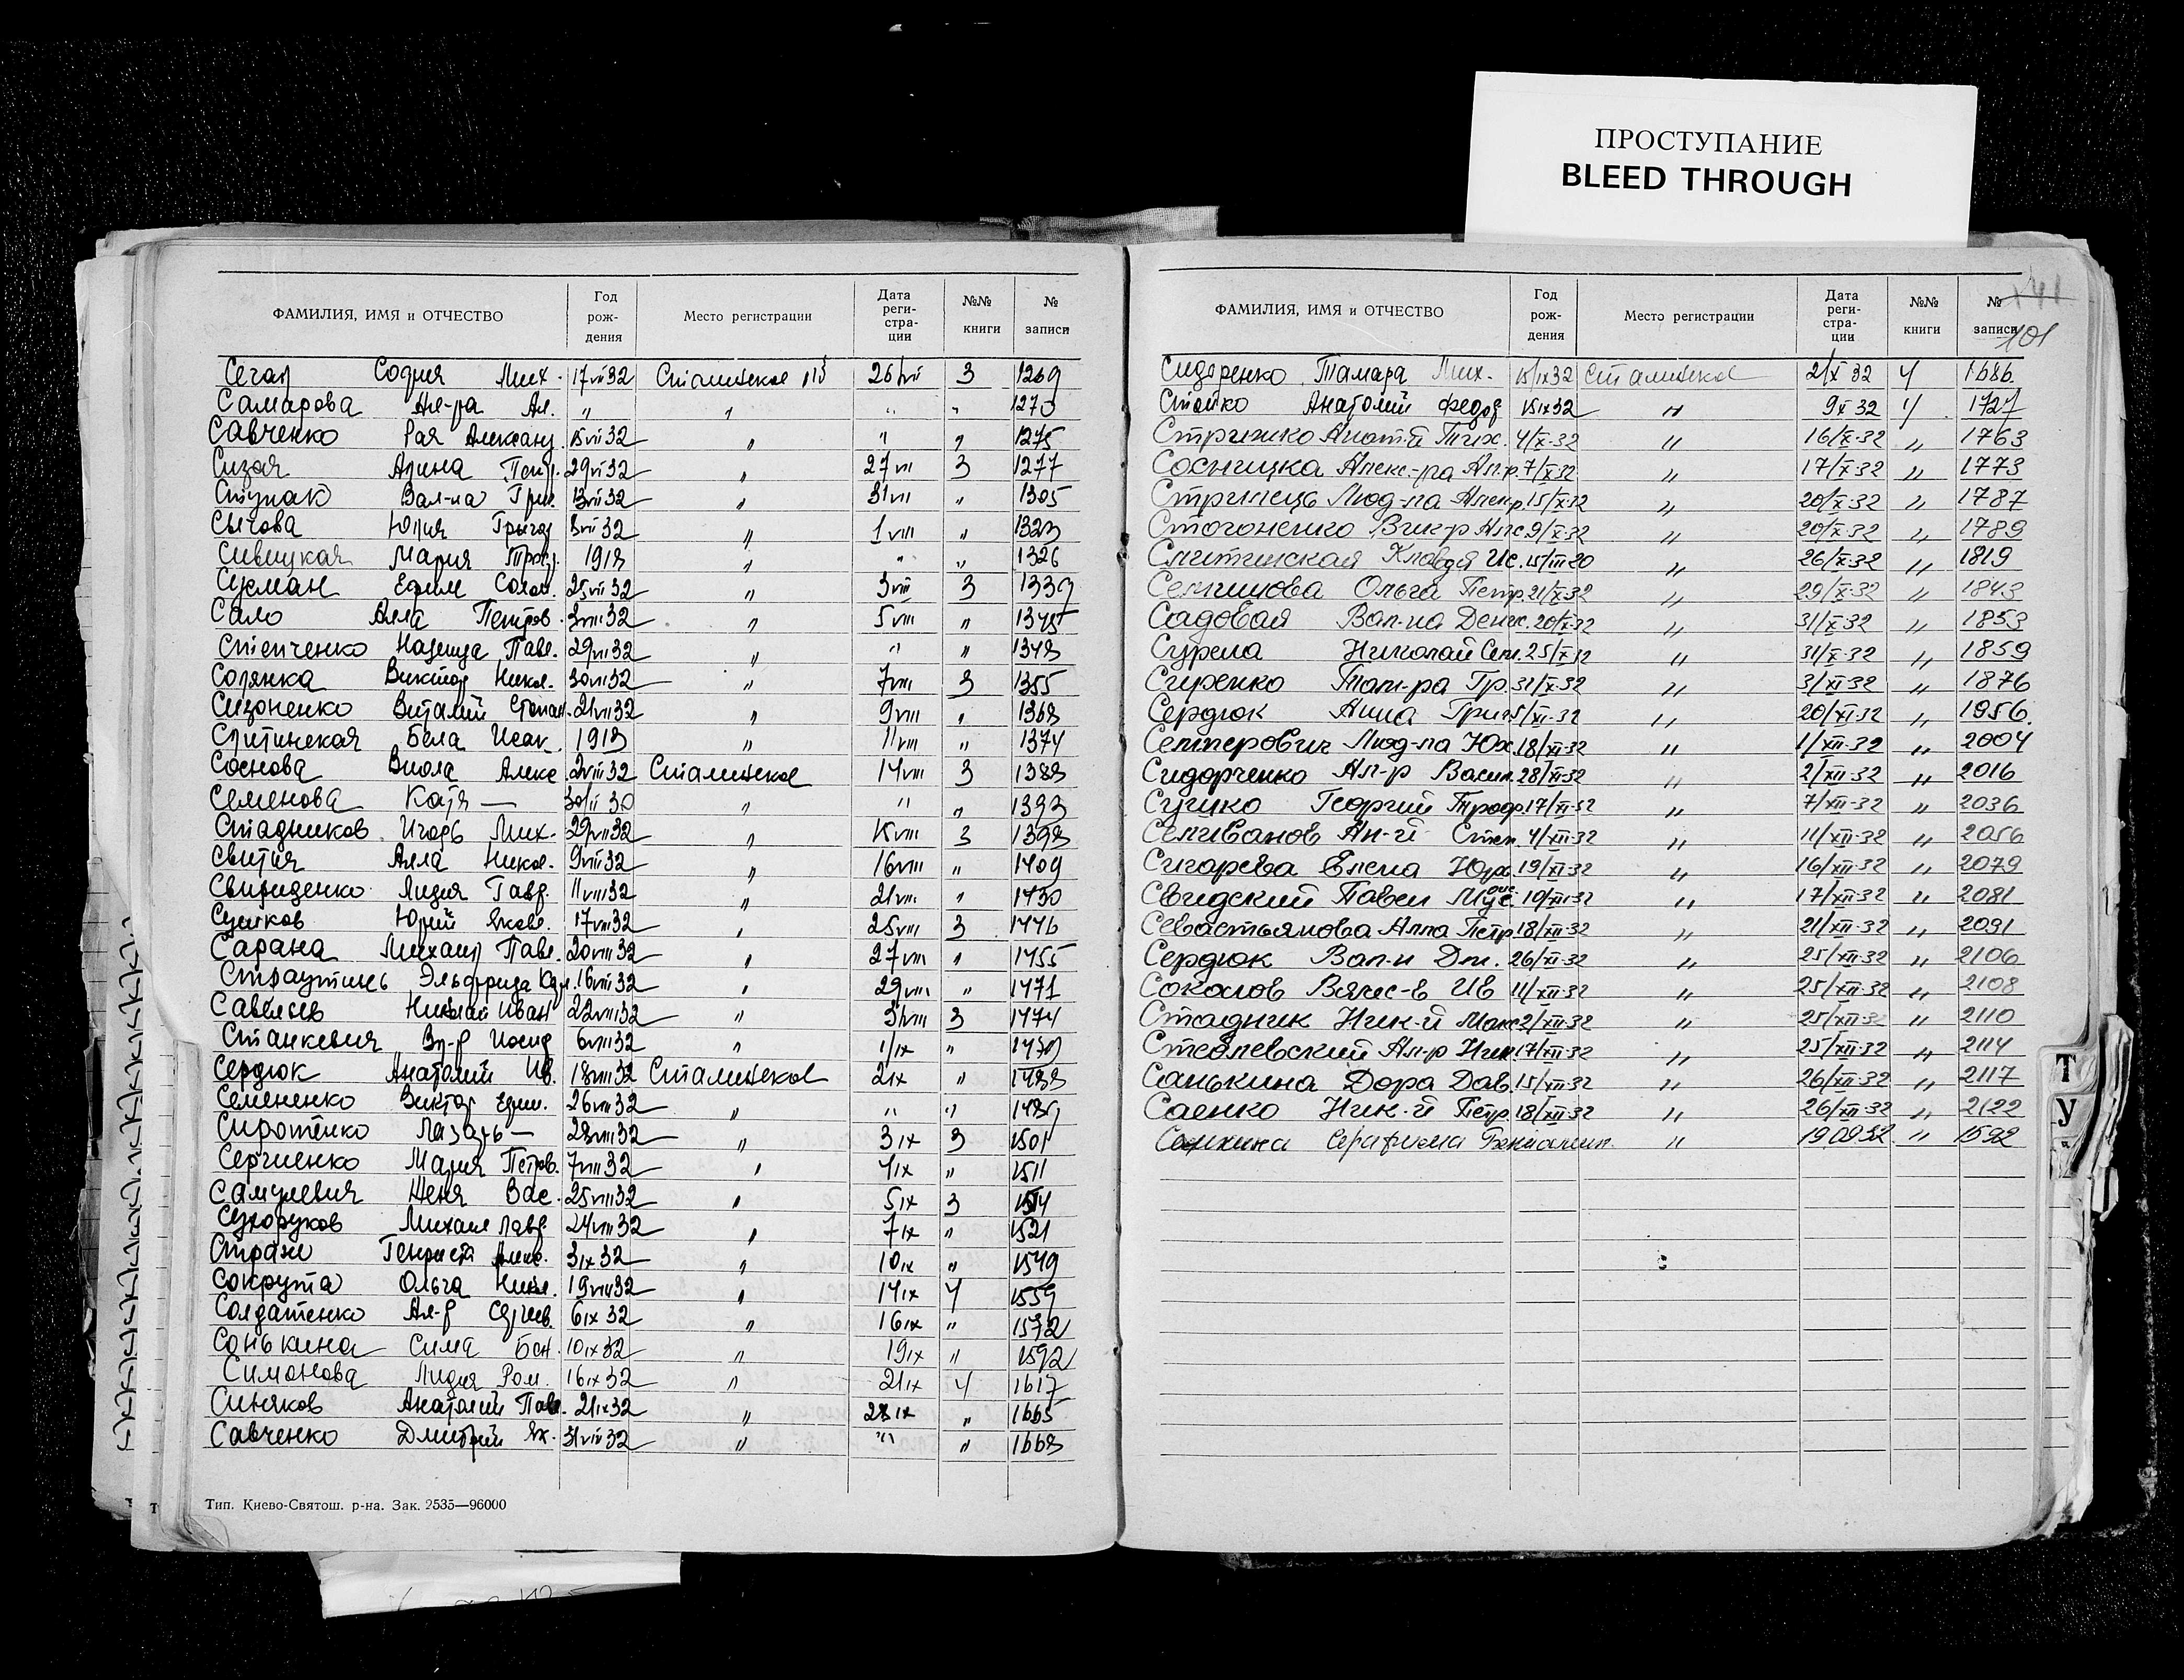 ПРОСТУПАНИЕ
BLEED THROUGH
ФАМИЛИЯ, ИМЯ и ОТЧЕСТВО Год рож- дения Место регистрации Дата реги- стра- ции №№ книги № записи
Сегал София Мих. 17 VII 32 Сталинское 26 VII 3 1269
Самарова Ал-ра Ал. " " " " 1270
Савченко Рая Александ. 15 VII 32 " " " 1275
Сизая Арина 29 VI 32 " 27 VII 3 1277
Ступак Вал-на Григ. 13 VII 32 " 31 VII " 1305
Сычова Юлия 8 VII 32 " 1 VIII " 1323
Сивицкая Мария 1918 " " " 1326
Сусман Ефим Солом. 25 VII 32 " 3 VIII 3 1339
Сало Алла Петров. 3 VIII 32 " 5 VIII " 1345
Степченко Надежда Павл. 29 VII 32 " " " 1348
Солянка Виктор Никол. 30 VII 32 " 7 VIII 3 1355
Сизоненко Виталий Степан. 21 VII 32 " 9 VIII " 1368
Слитинская Бела Исак. 1918 " 11 VIII " 1374
Соснова Виола Алекс. 2 VIII 32 Сталинское 14 VIII 3 1388
Семенова Катя — 30 30 " " " 1393
Стадников Игорь Мих. 29 VII 32 " VIII 3 1398
Свитич Алла Никол. 9 VIII 32 " 16 VIII " 1409
Свириденко Лидия Гавр. 11 VIII 32 " 21 VIII " 1430
Сушков Юрий Яковл. 17 VIII 32 " 25 VIII 3 1446
Сарана Михаил Павл. 20 VIII 32 " 27 VIII " 1455
Страутинь Эльфрида 16 VIII 32 " 29 VIII " 1471
Савельев Николай Иван 22 VIII 32 " 31 VIII 3 1474
Станкевич Иосиф 6 VIII 32 " 1/IX " 1479
Сердюк Анатолий Ив. 18 VIII 32 Сталинское 2 IX " 1488
Семененко Виктор Ефим. 26 VIII 32 " " " 1489
Сиротенко Лазарь — 28 VIII 32 " 3 IX 3 1501
Сергиенко Мария Петров. 7 VIII 32 " 4 IX " 1511
Самулевич Женя Вас. 25 VIII 32 " 5 IX 3 1514
Сухоруков Михаил Лавр. 24 VIII 32 " 7 IX " 1521
Страж Генриета Алекс. 3 IX 32 " 10 IX " 1549
Сокрута Ольга Никол. 19 VIII 32 " 14 IX 4 1559
Солдатенко Ал-р Сергеев. 6 IX 32 " 16 IX " 1572
Сонькина Сима Бен. 10 IX 32 " 19 IX " 1592
Симонова Лидия Ром. 16 IX 32 " 21 IX 4 1617
Синяков Анатолий Павл. 21 IX 32 " 28 IX " 1665
Савченко Дмитрий Як. 31 VIII 32 " " " 1668
Тип. Киево-Святош. р-на. Зак. 2535—96000
ФАМИЛИЯ, ИМЯ и ОТЧЕСТВО Год рож- дения Место регистрации Дата реги- стра- ции №№ книги № записи
101
Сидоренко Тамара Мих. 15/IX 32 Сталинское 2/X 32 4 1686
Стойко Анатолий Федор. 15 IX 32 " 9 X 32 4 1727
Стрижко Анат-й Тих. 4/X-32 " 16/X-32 " 1763
Сосницка Алекс-ра Ал-р. 7/X-32 " 17/X-32 " 1773
Стрилець Люд-ла Алек-р. 15/X-32 " 20/X-32 " 1787
Стогоненко Вик-р Алкс 9/X-32 " 20/X-32 " 1789
Слитинская Клавдя Ис. 15/III 20 " 26/X-32 " 1819
Селишова Ольга Петр. 21/X-32 " 29/X-32 " 1843
Садовая Вал-на Денис. 20/X-32 " 31/X-32 " 1853
Сурела Николай Сем. 25/X-32 " 31/X-32 " 1859
Сиренко Там-ра Гр. 31/X-32 " 3/XI-32 " 1876
Сердюк Анна Григ 5/XI-32 " 20/XI-32 " 1956
Семперович Люд-ла Юх. 18/XI-32 " 1/XII-32 " 2004
Сидорченко Ал-р Васил. 28/XI-32 " 2/XII-32 " 2016
Сушко Георгий Троф. 17/XI-32 " 7/XII-32 " 2036
Селиванов Ан-й Степ. 4/XII-32 " 11/XII-32 " 2056
Сигарева Елена Юр. 19/XI-32 " 16/XII-32 " 2079
Свидский Павел 10/XII-32 " 17/XII-32 " 2081
Севастьянова Алла Петр. 18/XII-32 " 21/XII-32 " 2091
Сердюк Вал-н Дм. 26/XI-32 " 25/XII-32 " 2106
Соколов Вячес-в Ив 11/XII-32 " 25/XII-32 " 2108
Стадник Ник-й Макс 2/XII-32 " 25/XII-32 " 2110
Стеолевский Ал-р Ник. 17/XII-32 " 25/XII-32 " 2114
Санькина Дора Дав. 15/XII-32 " 26/XII-32 " 2117
Саенко Ник-й Петр. 18/XII-32 " 26/XII-32 " 2122
Серафима Бениамин. " 19.09.32 " 1592
Т
У